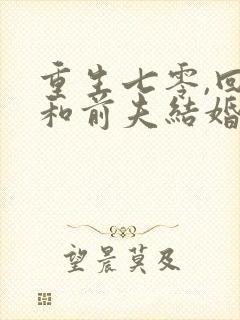 重生七零,回
和前夫結婚
望晨莫及